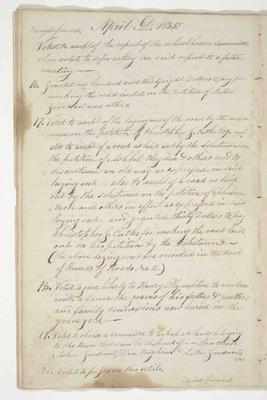 Brought forward, April D. 1835
Voted to accept of the report of the school house committee
then voted to defer acting on said report to a future
meeting —
16. Granted one hundred and thirty eight Dollars to pay for
making the road located on the petition of Luther
and others.
17. Voted to accept of the laying out of the road by the select
men on the petition of Christopher G. Cutler Esq. —
also to accept of a road as laid out by the Selectmen on
the petition of Hayden & others and to
discontinue an old way as expressed in said
laying out — also to accept of a road as laid
out by the Selectmen on the petition of
and others in effect as expressed in said
laying out — and granted thirty Dollars to pay
Christopher G. Cutler for making the road laid
out on his petition by the Selectmen —
(The above laying outs are recorded in the Book
of Records of Roads, No 2)
18. Voted to give liberty to Henry to enclose
with a fence the graves of his father & mother
and family connexions now buried in the
grave yard —
19. Voted to choose a committee to all lands belonging
to the town that can be disposed of — then chose
Goodnow, Wm Brigham & Luther Goodnow
20. Voted to pass over this article.
Carried forward